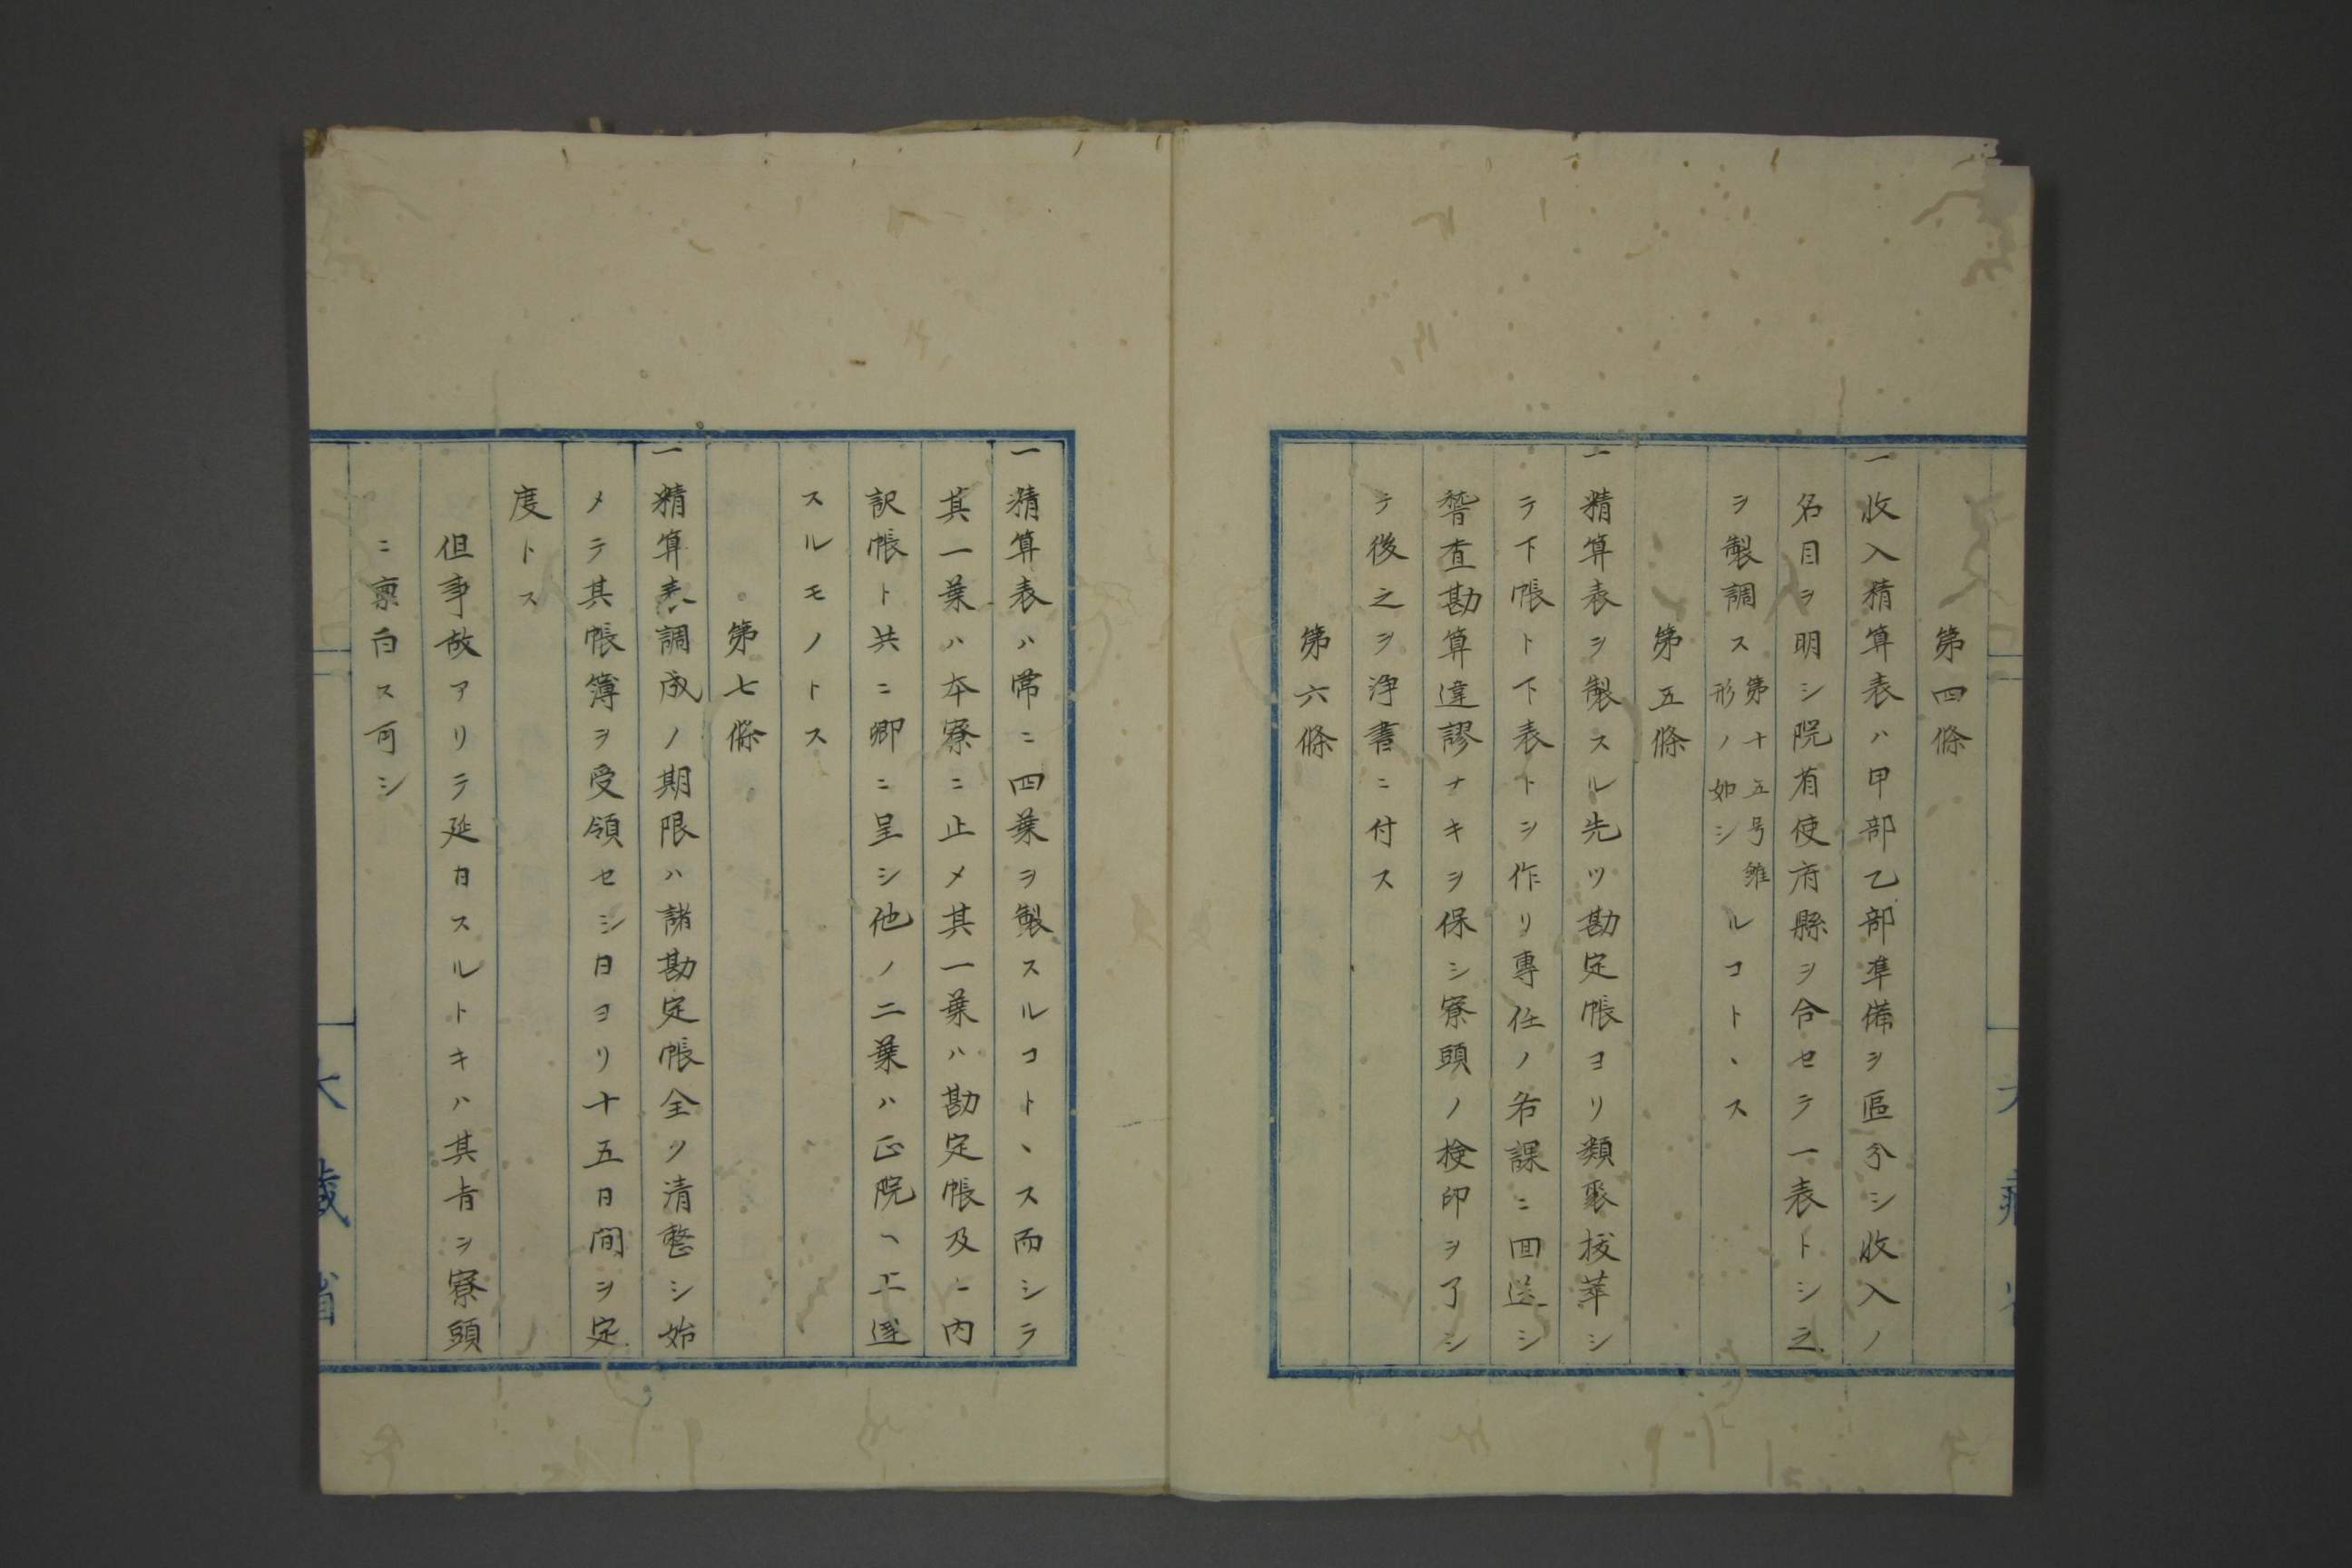 第四條
一收入精算表ハ甲部乙部準備ヲ區分シ收入ノ
名目ヲ明シ院省使府縣ヲ合セテ一表トシ之
ヲ製調ス第十五号雛形ノ如シルコトヽス
第五條
一精算表ヲ製スル先ツ勘定帳ヨリ類聚拔萃シ
テ下帳ト下表トヲ作リ專任ノ各課ニ回送シ
督查勘算違謬ナキヲ保シ寮頭ノ檢印ヲ了シ
テ後之ヲ浄書ニ付ス
第六條
一精算表ハ常ニ四葉ヲ製スルコトヽス而シテ
其一葉ハ本寮ニ止メ其一葉ハ勘定帳及ニ内
訳帳ト共ニ卿ニ呈シ他ノ二葉ハ正院ヘ上逞
スルモノトス
第七條
一精算表調成ノ期限ハ諸勘定帳全ク清整シ始
メテ其帳簿ヲ受領セシ日ヨリ十五日間ヲ定
度トス
但事故アリテ延日スルトキハ其旨ヲ寮頭
ニ稟白ス可シ
大藏省